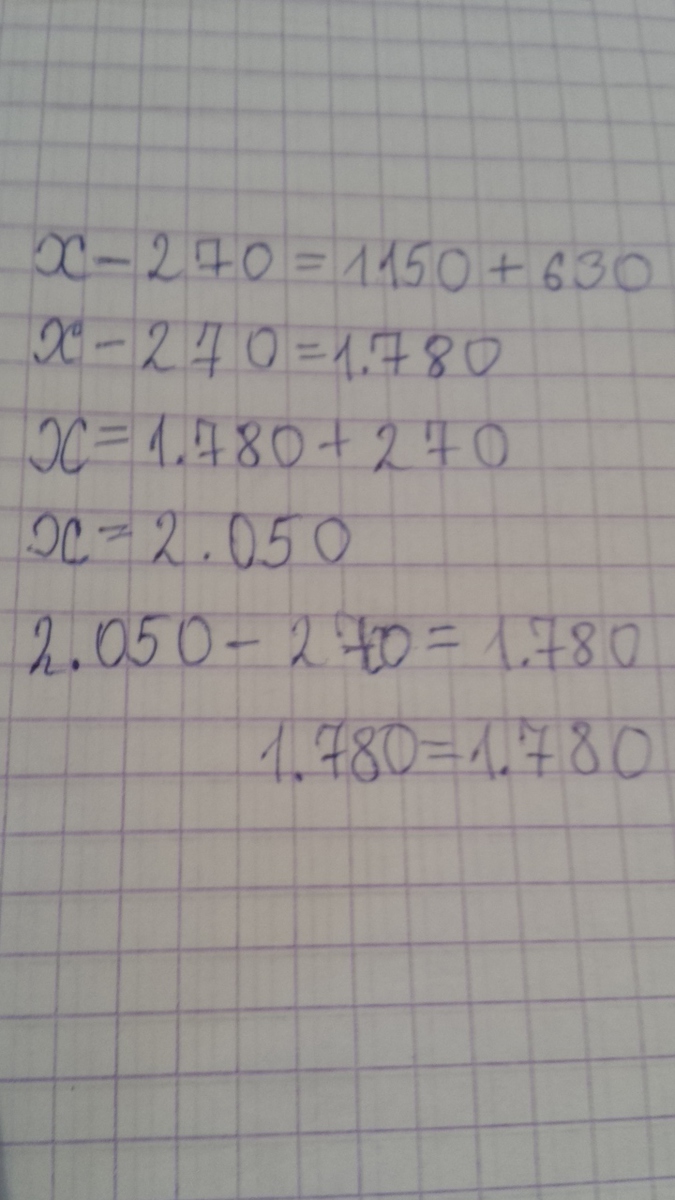 x - 270 = 1150 + 630
x - 270 = 1.780
x = 1.780 + 270
x = 2.050
2.050 - 270 = 1.780
1.780 = 1.780